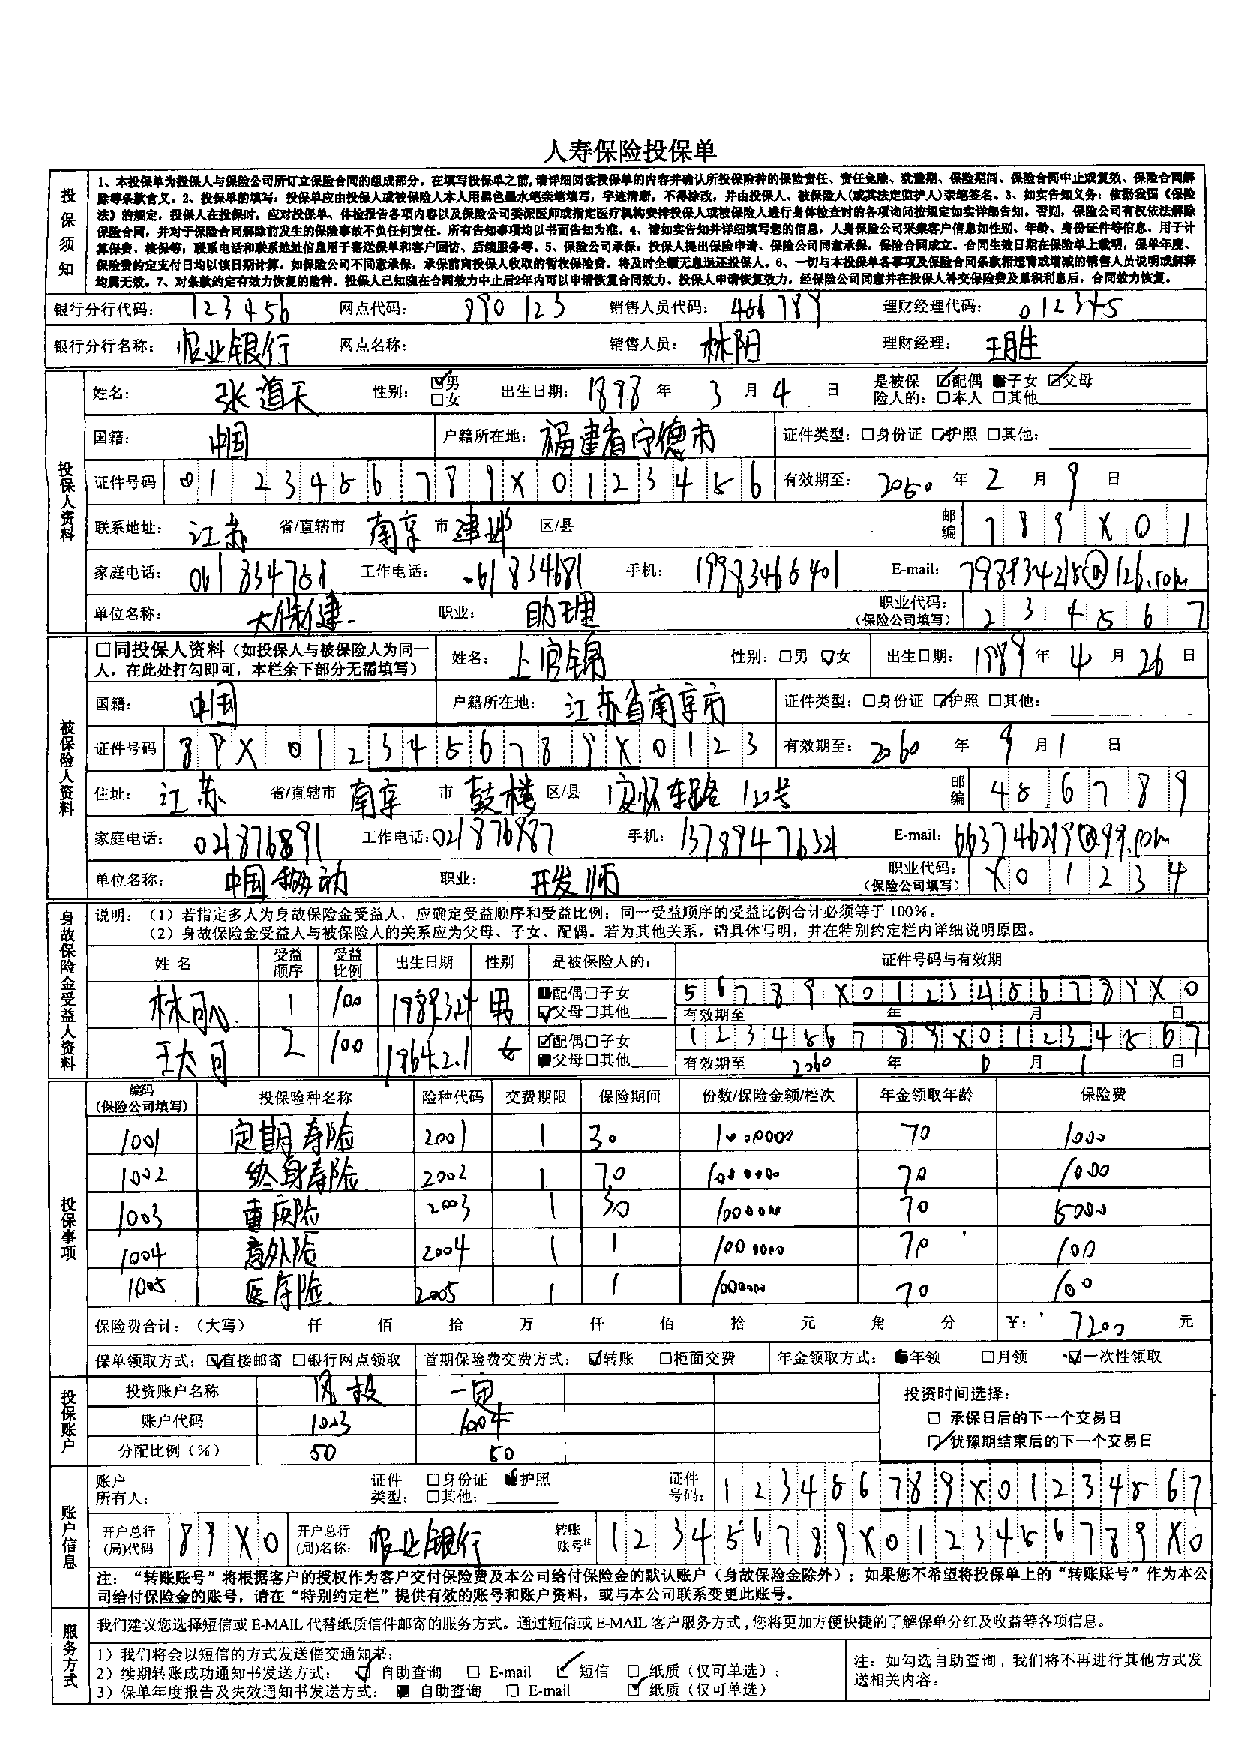 人寿保险投保单
投保须知
1、本投保单为投保人与保险公司所订立保险合同的组成部分，在填写投保单之前，请详细阅读投保单的内容并确认所投保险种的保险责任、责任免除、犹豫期、保险期间、保险合同中止或复效、保险合同解
除等条款含义。2、投保单的填写：投保单应由投保人或被保险人本人用黑色墨水笔亲笔填写，字迹清晰，不得涂改，并由投保人、被保险人(或其法定监护人)亲笔签名。3、如实告知义务：依据我国《保险
法》的规定，投保人在投保时，应对投保单、体检报告各项内容以及保险公司委派医师或指定医疗机构安排投保人或被保险人进行身体检查时的各项询问按规定如实详细告知。否则，保险公司有权依法解除
保险合同，并对于保险合同解除前发生的保险事故不负任何责任。所有告知事项均以书面告知为准。4、请如实告知并详细填写您的信息，人身保险公司采集客户信息如性别、年龄、身份证件等信息、用于计
算保费、核保等；联系电话和联系地址信息用于寄送保单和客户回访、后续服务等。5、保险公司承保：投保人提出保险申请、保险公司同意承保，保险合同成立。合同生效日期在保险单上载明，保单年度、
保险费约定支付日均以该日期计算。如保险公司不同意承保，承保前向投保人收取的暂收保险费，将及时全额无息退还投保人。6、一切与本投保单各事项及保险合同条款相违背或增减的销售人员说明或解释
均属无效。7、对条款约定有效力恢复的险种，投保人已知晓在合同效力中止后2年内可以申请恢复合同效力、投保人申请恢复效力，经保险公司同意并在投保人补交保险费及累积利息后，合同效力恢复。
银行分行代码： 123456 网点代码： 890123 销售人员代码： 466789 理财经理代码： 012345
银行分行名称： 银行 网点名称： 销售人员： 林阳 理财经理： 王胜
投保人资料
姓名： 张道天 性别： 男 女 出生日期： 1898 年 3 月 4 日 是被保险人的： 配偶 子女 父母 本人 其他
国籍： 中国 户籍所在地： 福建省宁德市 证件类型： 身份证 护照 其他：
证件号码 0123456789X0123456 有效期至： 2050 年 2 月 9 日
联系地址： 江苏 省/直辖市 南京 市 建邺 区/县 邮编 789X01
家庭电话： 061834761 工作电话： 061834681 手机： 19983466401 E-mail:
单位名称： 大保健 职业： 助理 职业代码：(保险公司填写) 234567
被保险人资料
□同投保人资料（如投保人与被保险人为同一人，在此处打勾即可，本栏余下部分无需填写） 姓名： 上官锦 性别： □男 女 出生日期： 1989 年 4 月 26 日
国籍： 中国 户籍所在地： 江苏省南京市 证件类型： □身份证 护照 □其他：
证件号码 89X0123456789X0123 有效期至： 2060 年 9 月 1 日
住址： 江苏 省/直辖市 南京 市 鼓楼 区/县 路 122号 邮编 456789
家庭电话： 021876891 工作电话： 021876987 手机： 13789947634 E-mail:
单位名称： 中国移动 职业： 开发师 职业代码：(保险公司填写) X01234
身故保险金受益人资料
说明：（1）若指定多人为身故保险金受益人，应确定受益顺序和受益比例；同一受益顺序的受益比例合计必须等于100%。
（2）身故保险金受益人与被保险人的关系应为父母、子女、配偶。若为其他关系，请具体写明，并在特别约定栏内详细说明原因。
姓 名 受益顺序 受益比例 出生日期 性别 是被保险人的： 证件号码与有效期
林可心 1 100 1989.3.24 男 配偶□子女 父母□其他 56789X0123456789X0
有效期至 年 月 日
王大可 2 100 1964.2.1 女 配偶□子女 父母□其他 123456789X01234567
有效期至 2060 年 月 1 日
投保事项
编码(保险公司填写) 投保险种名称 险种代码 交费期限 保险期间 份数/保险金额/档次 年金领取年龄 保险费
1001 定期寿险 2001 1 30 1000000 70 1000
1002 终身寿险 2002 1 70 1000000 70 1000
1003 重疾险 2003 1 30 1000000 70 5000
1004 意外险 2004 1 1 70 100
1005 医疗险 2005 1 1 70 100
保险费合计：（大写） 仟 佰 拾 万 仟 佰 拾 元 角 分 ￥： 7200 元
保单领取方式： 直接邮寄 □银行网点领取 首期保险费交费方式： 转账 □柜面交费 年金领取方式： 年领 □月领 一次性领取
投保账户
投资账户名称 风投 投资时间选择：
账户代码 1003 1004 □ 承保日后的下一个交易日
分配比例（%） 50 50 犹豫期结束后的下一个交易日
账户信息
账户所有人： 证件类型： □身份证 护照 □其他： 证件号码： 123456789X01234567
开户总行(局)代码 89X0 开户总行(局)名称： 银行 转账账号 123456789X0123456789X0
注：“转账账号”将根据客户的授权作为客户交付保险费及本公司给付保险金的默认账户（身故保险金除外）；如果您不希望将投保单上的“转账账号”作为本公
司给付保险金的账号，请在“特别约定栏”提供有效的账号和账户资料，或与本公司联系变更此账号。
服务方式
我们建议您选择短信或E-MAIL代替纸质信件邮寄的服务方式。通过短信或E-MAIL客户服务方式，您将更加方便快捷的了解保单分红及收益等各项信息。
1）我们将会以短信的方式发送催交通知书；
2）续期转账成功通知书发送方式： 自助查询 □ E-mail 短信 □ 纸质（仅可单选）；
3）保单年度报告及失效通知书发送方式： 自助查询 □ E-mail 纸质（仅可单选）
注：如勾选自助查询，我们将不再进行其他方式发
送相关内容。